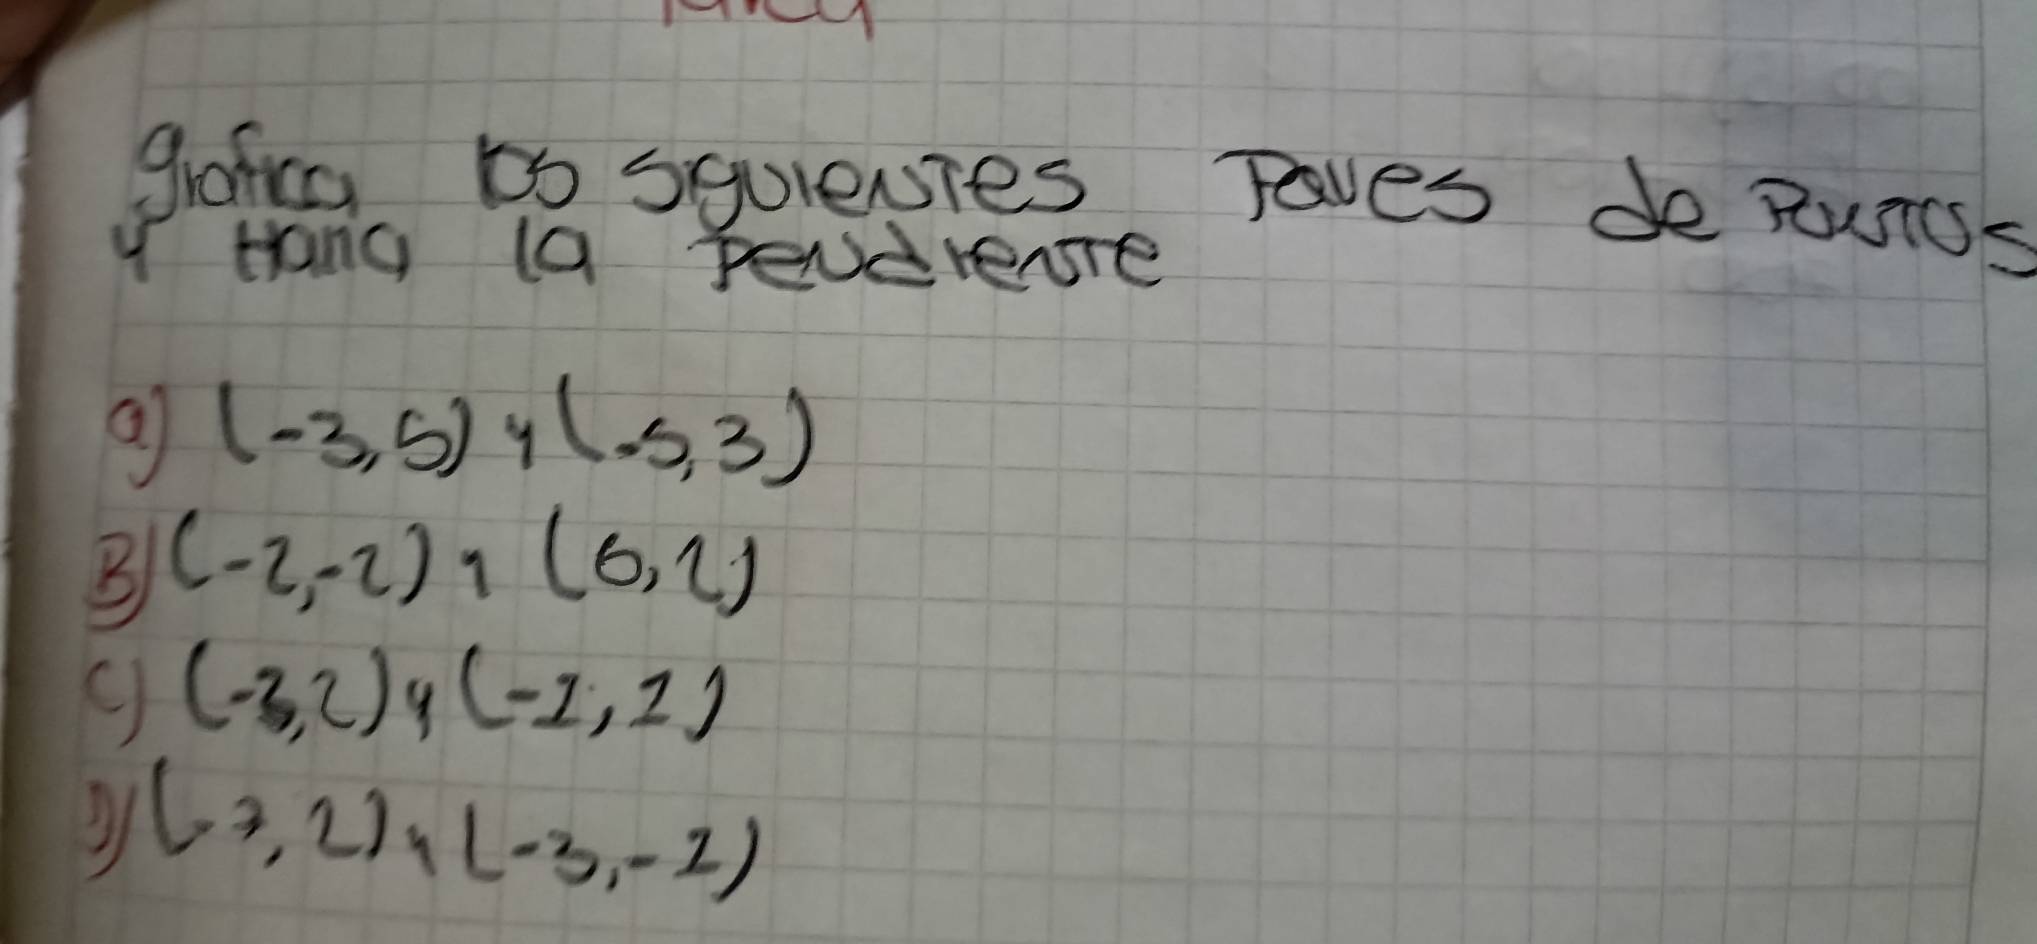 grafica los siguientes Pares de Puntos
y Halla la Pendiente
a) (-3,5) y (-5,3)
B) (-2,-2) y (6,2)
C) (-3,2) y (-1,1)
D) (-7,2) y (-3,-1)